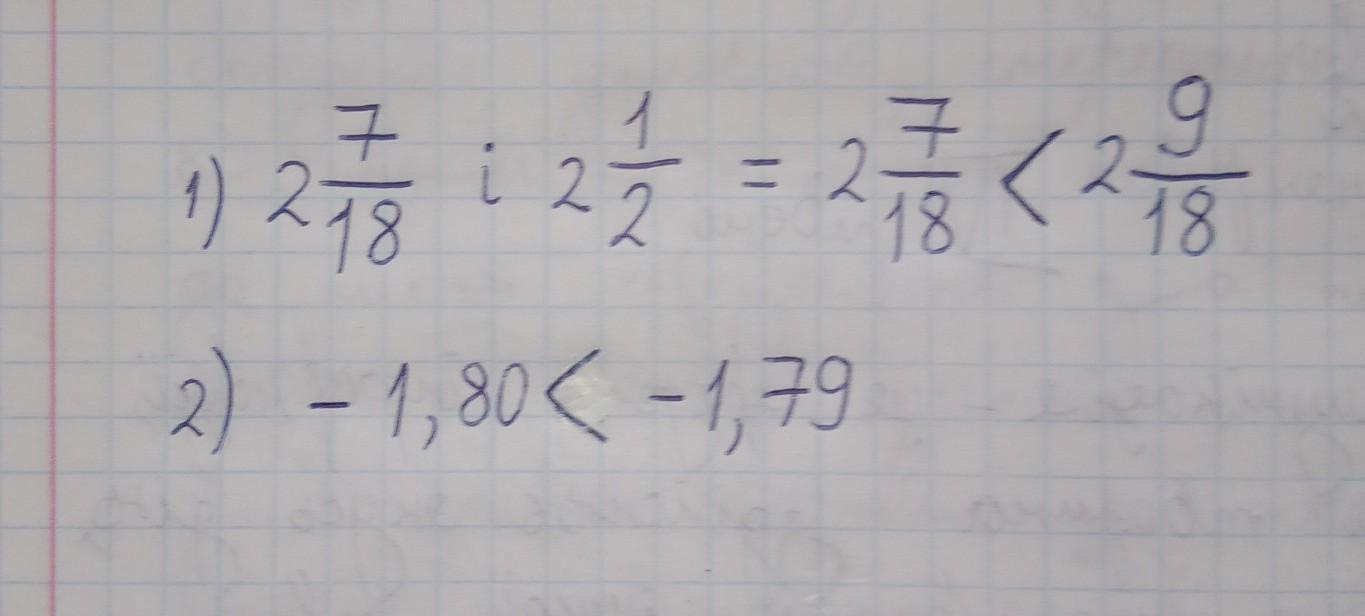 1) 2 7/18 і 2 1/2 = 2 7/18 < 2 9/18
2) - 1,80 < - 1,79